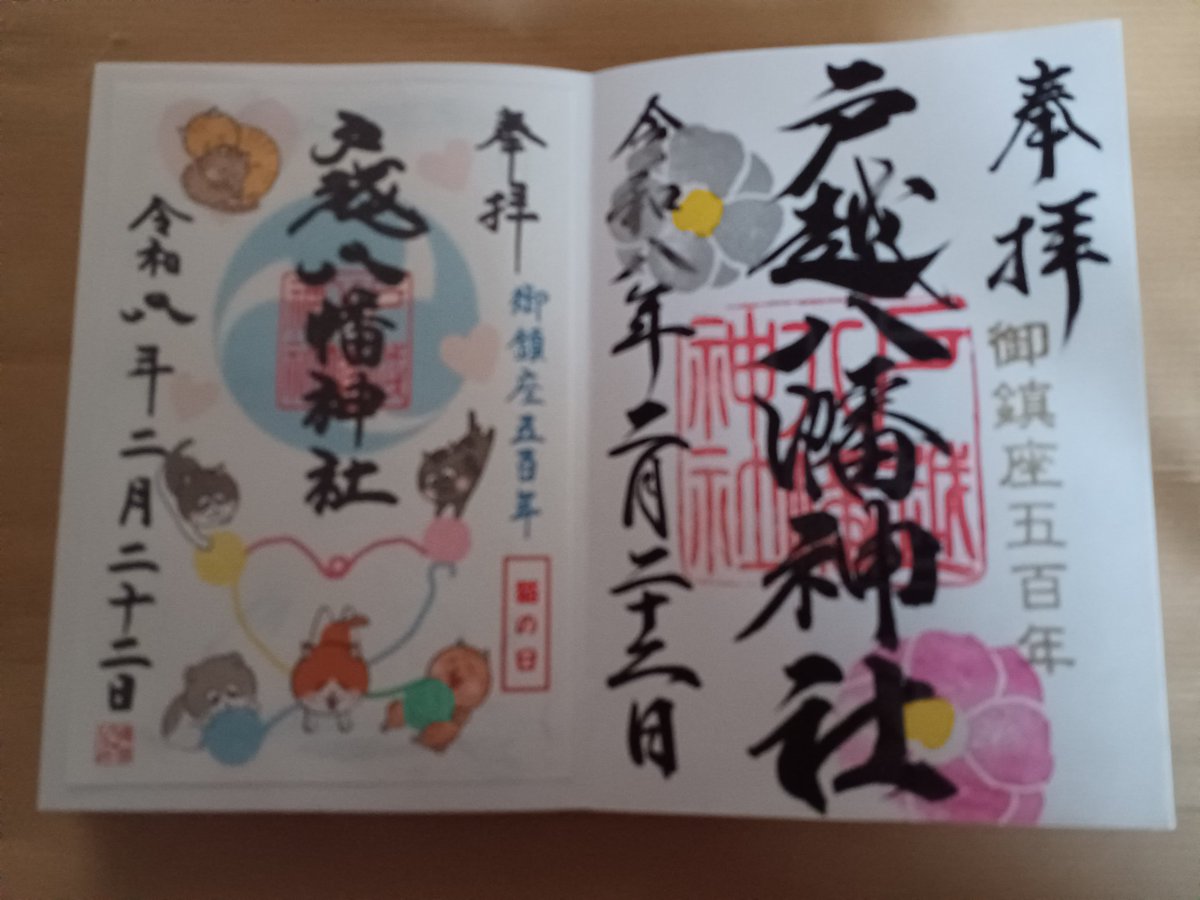 奉拝
御鎮座五百年
戸越八幡神社
令和八年二月二十二日
奉拝
御鎮座五百年
猫の日
戸越八幡神社
令和八年二月二十二日